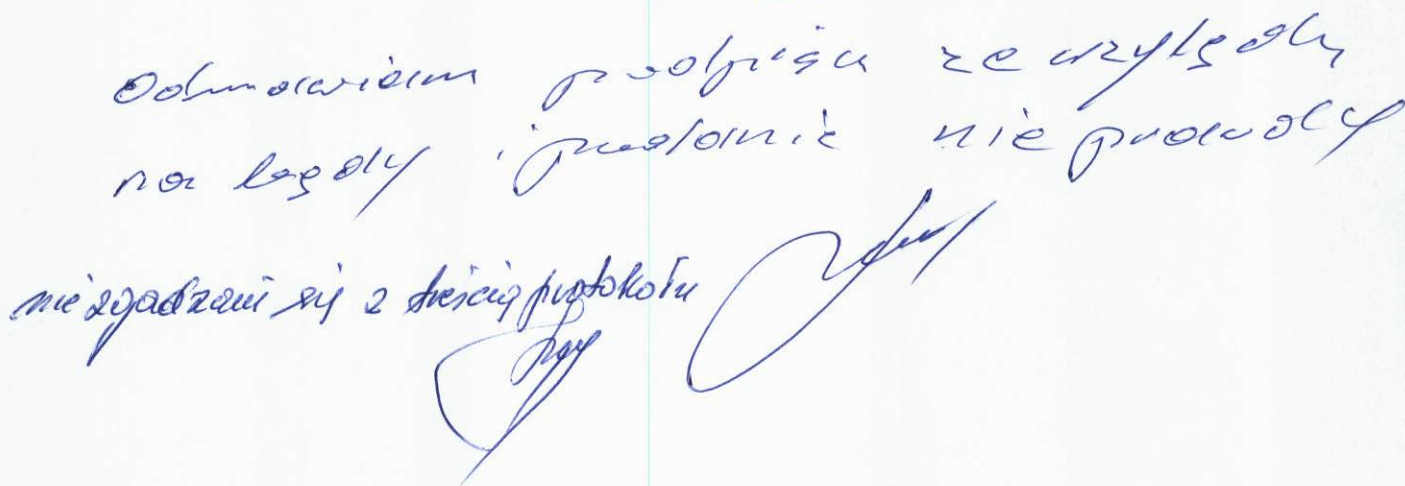 Odmawiam podpisu ze względu
na będy i podanie nie prawdy
nie zgadzam się z treścią protokołu